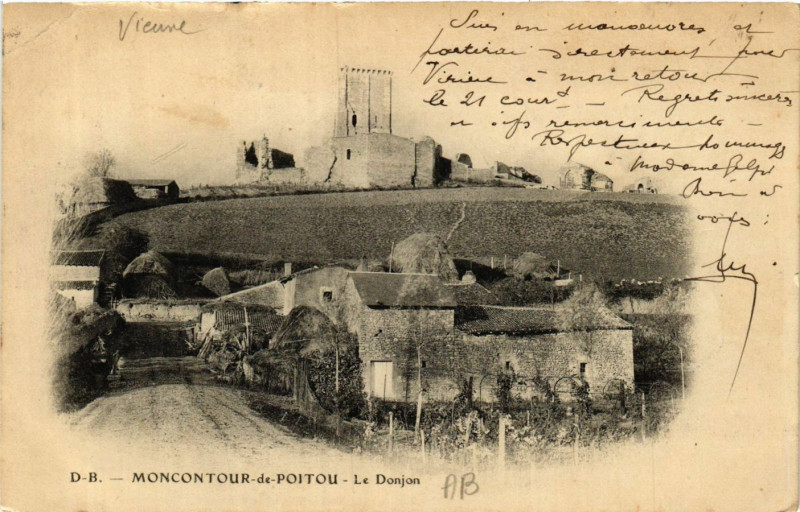 Vienne
Suis en manœuvres et
partirai directement pour
Virieu à mon retour
le 21 cour^t — Regrets sincères
et remerciments —
Respectueux hommages
à Madame
à
vous :
D-B. — MONCONTOUR-de-POITOU - Le Donjon
AB